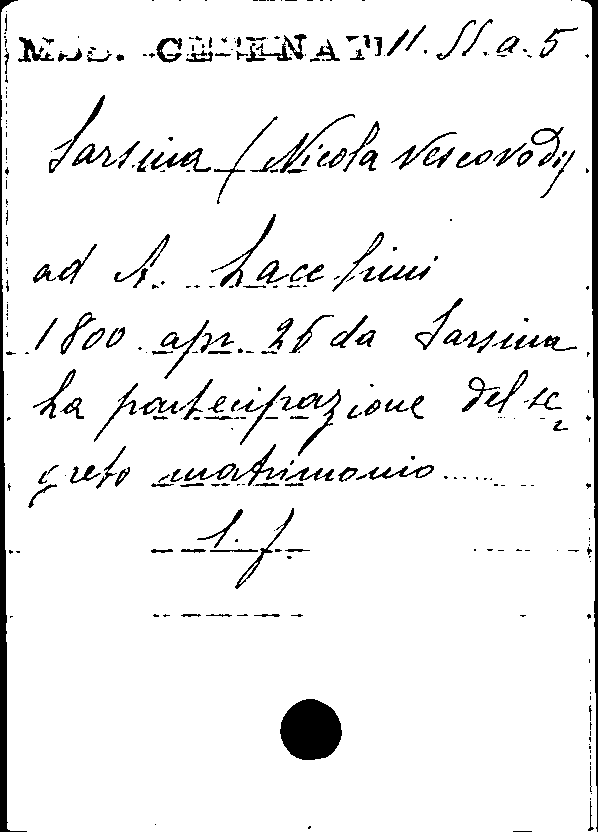 MSS. CESENATI 11. SS. a. 5
Sarsina (Nicola Vescovo di)
ad A.
1800 apr. 26 da Sarsina
La partecipazione del se=
greto matrimonio.....